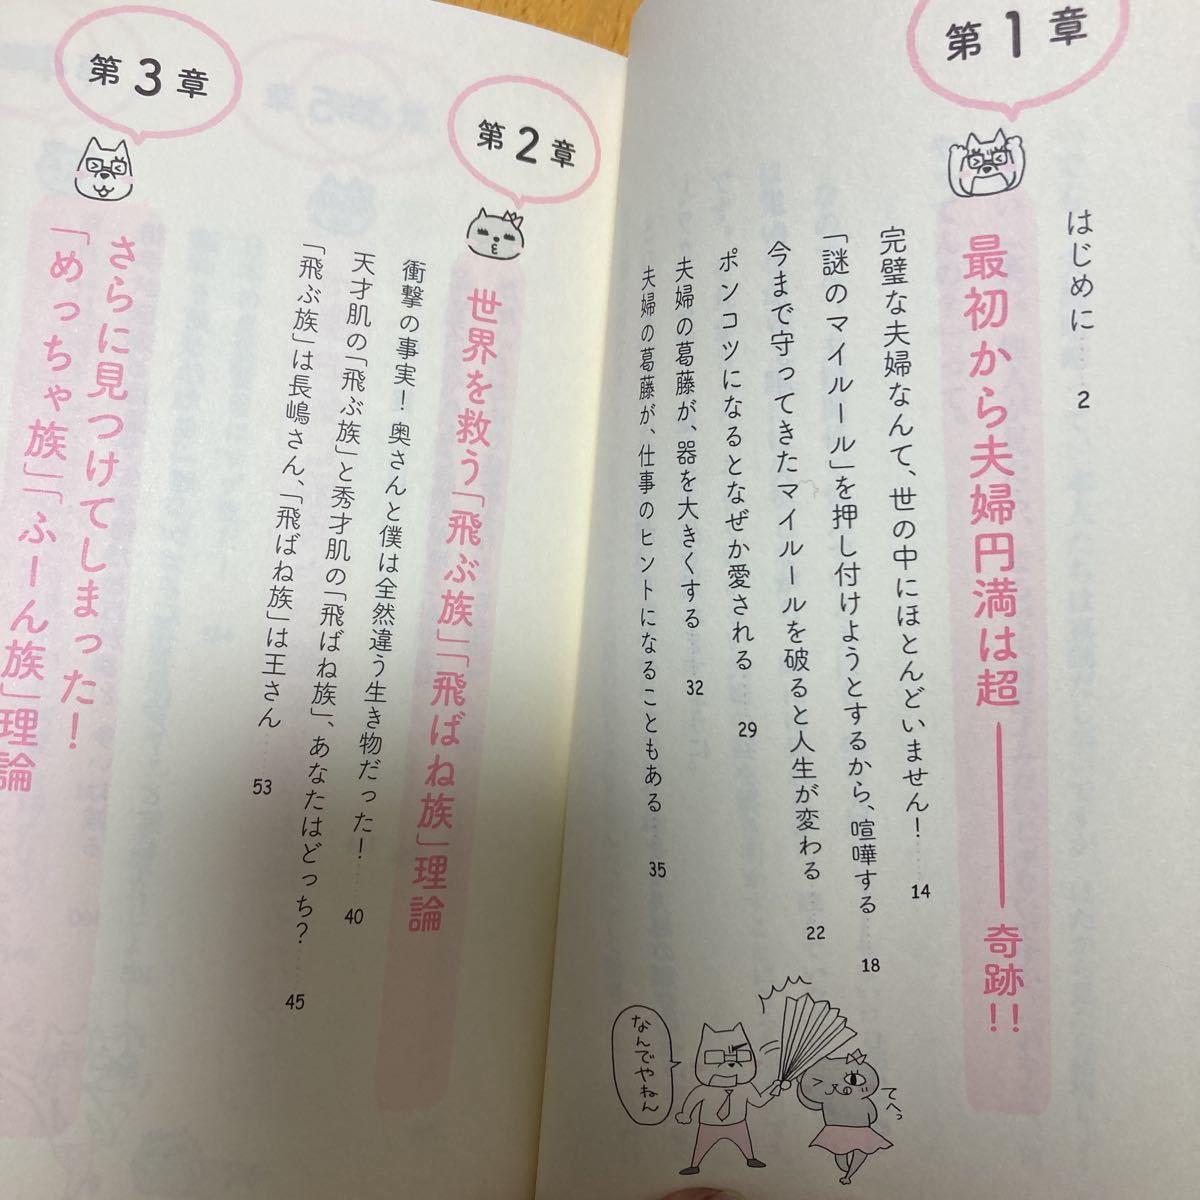 第1章
はじめに……2
最初から夫婦円満は超――奇跡!!
完璧な夫婦なんて、世の中にほとんどいません!……14
「謎のマイルール」を押し付けようとするから、喧嘩する……18
今まで守ってきたマイルールを破ると人生が変わる……22
ポンコツになるとなぜか愛される……29
夫婦の葛藤が、器を大きくする……32
夫婦の葛藤が、仕事のヒントになることもある……35
なんでやねん
てへっ
第2章
世界を救う「飛ぶ族」「飛ばね族」理論
衝撃の事実!奥さんと僕は全然違う生き物だった!……40
天才肌の「飛ぶ族」と秀才肌の「飛ばね族」、あなたはどっち?……45
「飛ぶ族」は長嶋さん、「飛ばね族」は王さん……53
第3章
さらに見つけてしまった!
「めっちゃ族」「ふーん族」理論